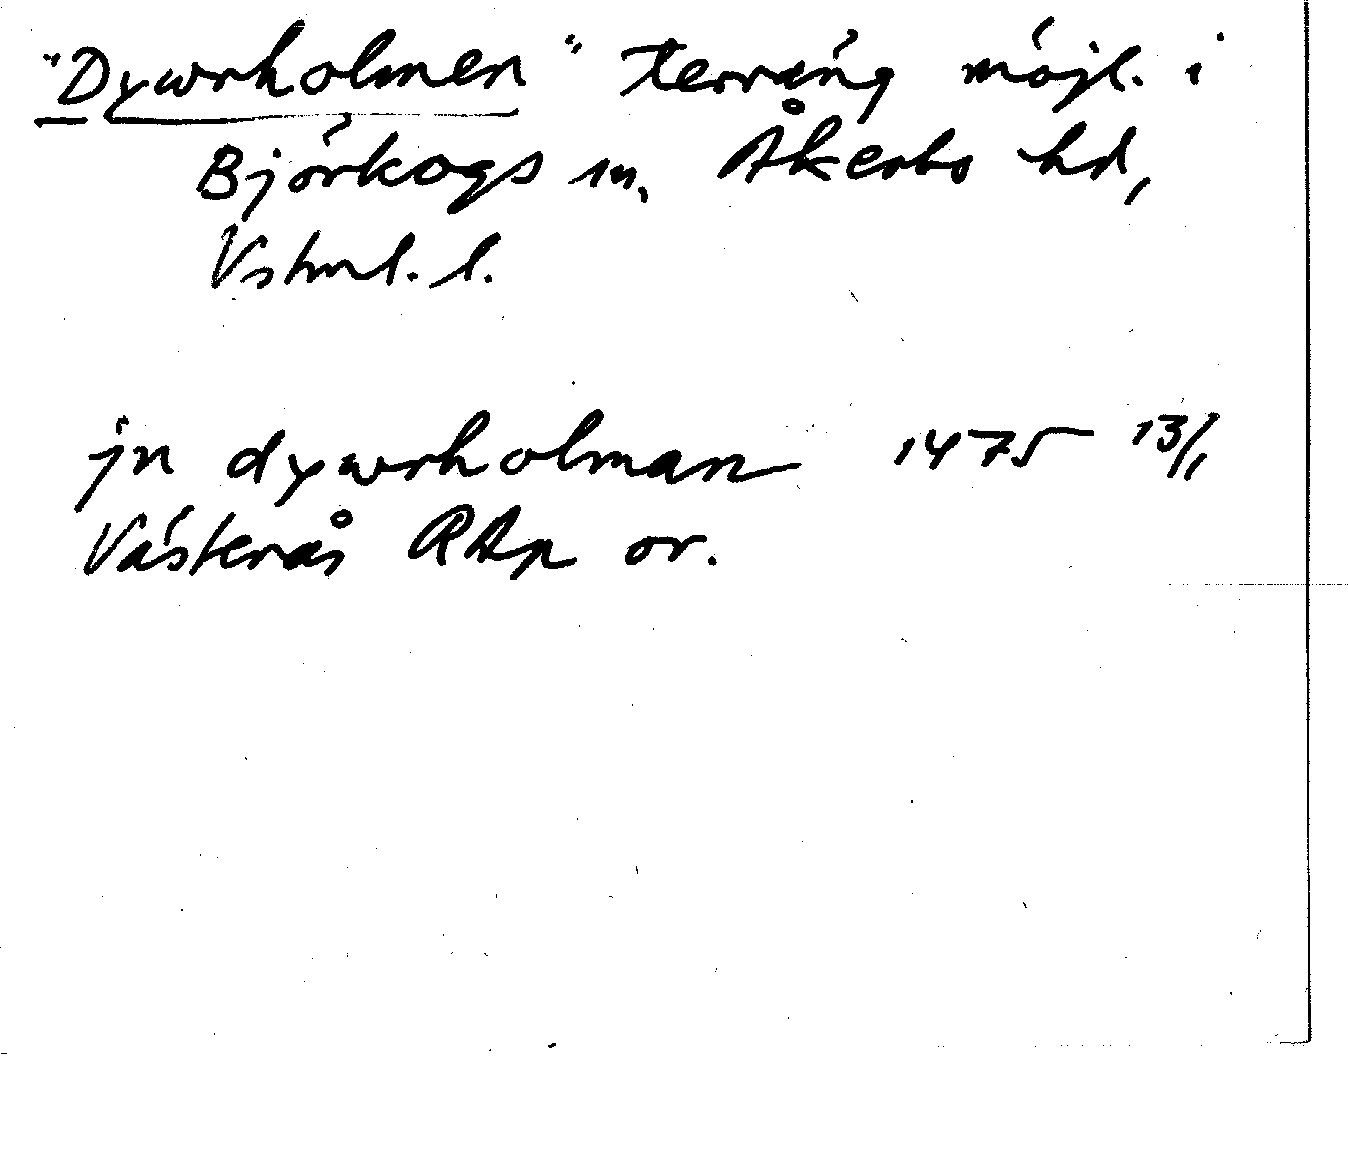 "Dywrholmen" terräng möjl. i
Björkogs sn, Åkerbo hd,
Vstml. l.
jn dywrholman 1475 13/1
Västerås RAp or.